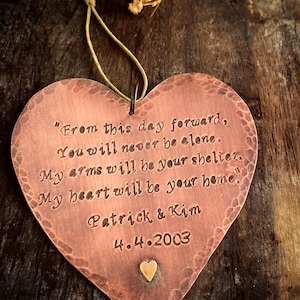 "From this day forward,
You will never be alone.
My arms will be your shelter.
My heart will be your home.
Patrick & Kim
4.4.2003